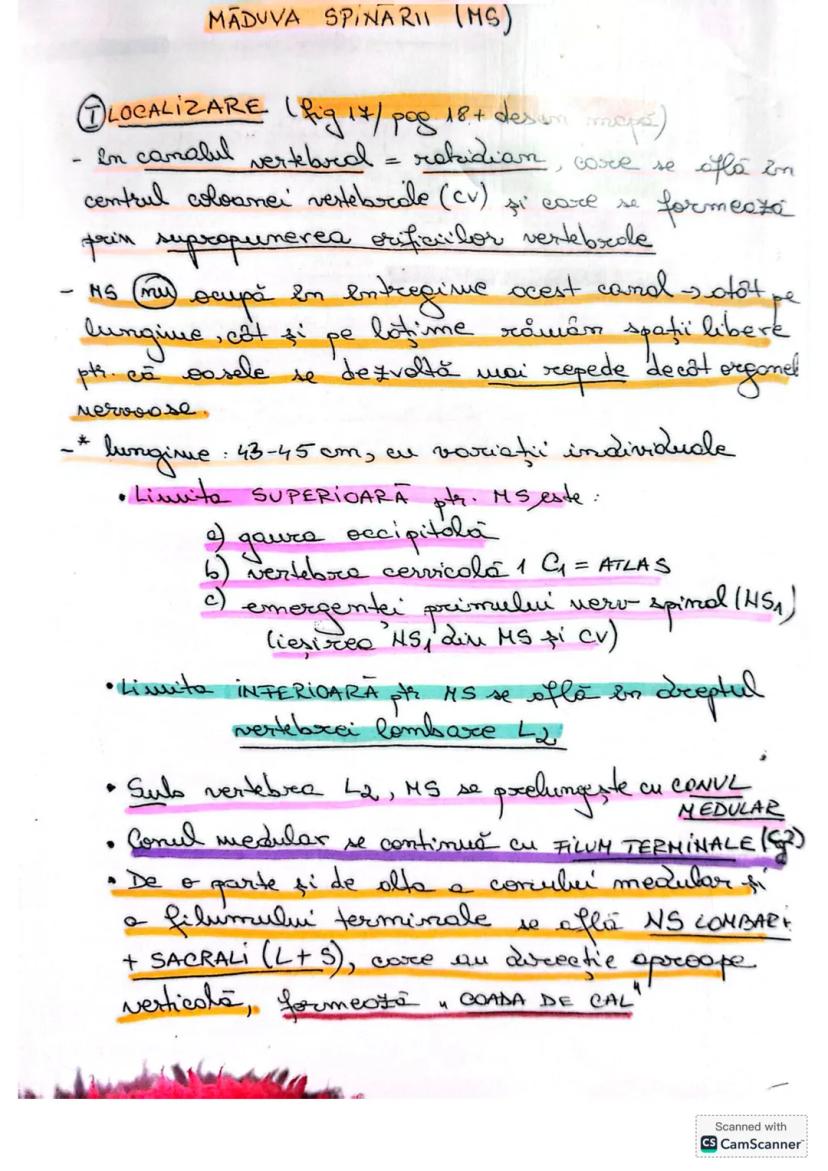 MĂDUVA SPINĂRII (MS)
I LOCALIZARE (fig 17/ pag 18 + desen mapă)
- În canalul vertebral = rahidian, care se află în
centrul coloanei vertebrale (CV) și care se formează
prin suprapunerea orificiilor vertebrale
- MS nu ocupă în întregime acest canal → atât pe
lungime, cât și pe lățime rămân spații libere
ptr. că oasele se dezvoltă mai repede decât organel
nervoase.
-* lungime : 43-45 cm, cu variații individuale
• Limita SUPERIOARĂ ptr. MS este :
a) gaura occipitală
b) vertebra cervicală 1 C1 = ATLAS
c) emergenței primului nerv spinal (NS1)
(ieșirea NS1 din MS și CV)
• Limita INFERIOARĂ ptr MS se află în dreptul
vertebrei lombare L2
• Sub vertebra L2, MS se prelungește cu CONUL
MEDULAR
• Conul medular se continuă cu FILUM TERMINALE (Cg2)
• De o parte și de alta a conului medular și
a filumului terminale se află NS LOMBARI
+ SACRALI (L+S), care au direcție aproape
verticală, formează „COADA DE CAL"
Scanned with
CS CamScanner